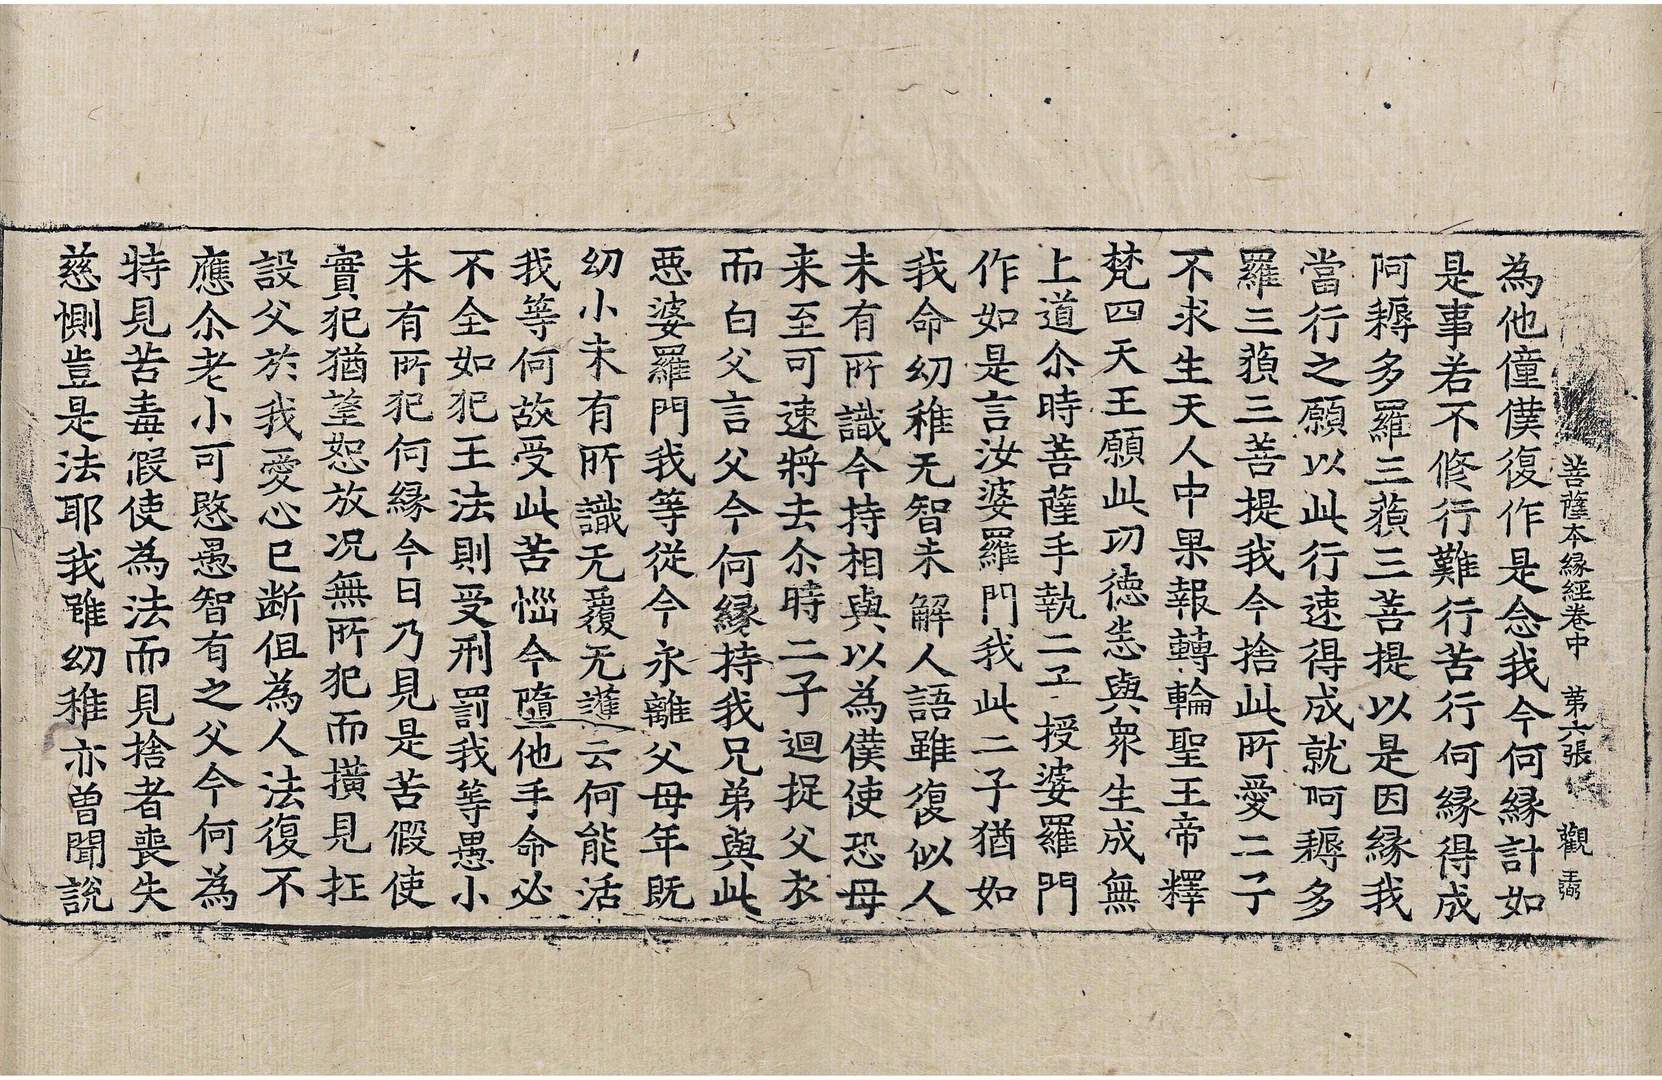 菩薩本縁經卷中 第六張 觀
為他僮僕復作是念我今何縁計如
是事若不修行難行苦行何縁得成
阿耨多羅三藐三菩提以是因縁我
當行之願以此行速得成就阿耨多
羅三藐三菩提我今捨此所愛二子
不求生天人中果報轉輪聖王帝釋
梵四天王願此功德悉與衆生成無
上道尒時菩薩手執二子授婆羅門
作如是言汝婆羅門我此二子猶如
我命幼稚无智未解人語雖復似人
未有所識今持相與以為僕使恐母
来至可速將去尒時二子迴捉父衣
而白父言父今何縁持我兄弟與此
惡婆羅門我等從今永離父母年既
幼小未有所識无覆无護云何能活
我等何故受此苦惱今墮他手命必
不全如犯王法則受刑罰我等愚小
未有所犯何縁今日乃見是苦假使
實犯猶望恕放况無所犯而橫見抂
設父於我愛心已断但為人法復不
應尒老小可愍愚智有之父今何為
特見苦毒假使為法而見捨者喪失
慈惻豈是法耶我雖幼稚亦曽聞説